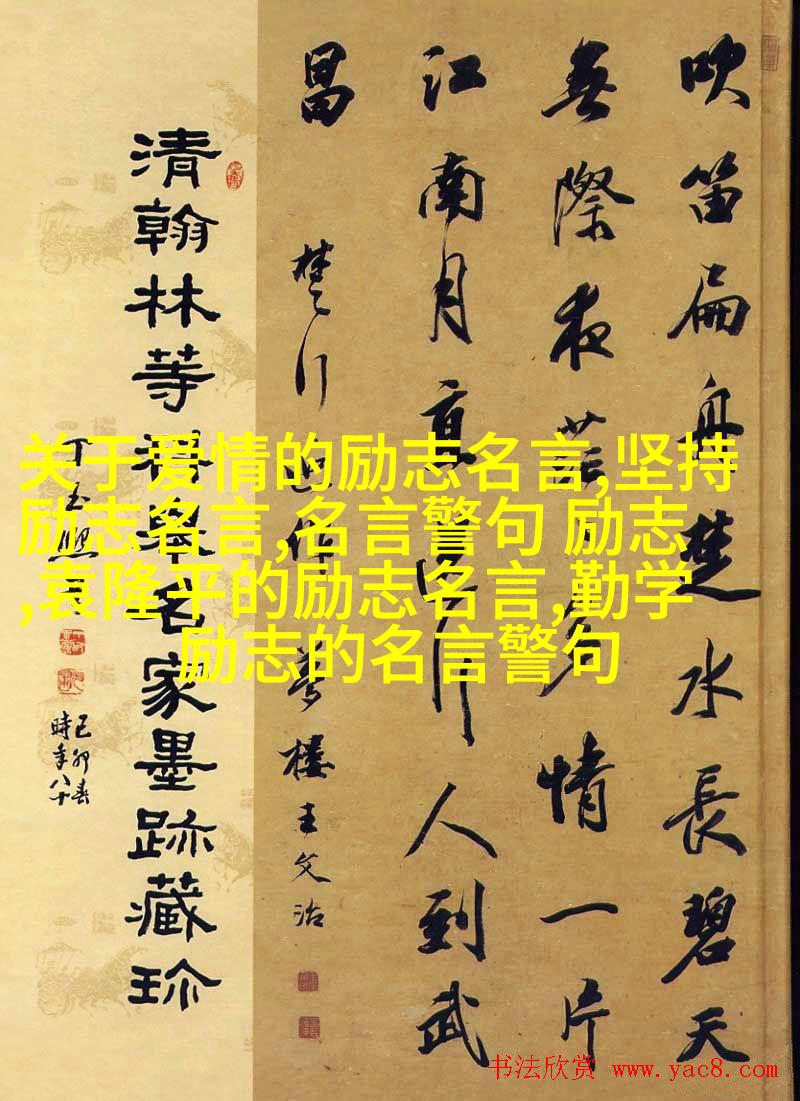 吹笛扁舟楚水長碧天
無際夜茫茫多情一片
江南月直送行人到武
昌
楚行近作 夢樓王文治
清翰林等科舉名家墨跡藏珍
丁玉熙
己卯春
時年八十
关于爱情的励志名言,坚持
励志名言,名言警句 励志
,袁隆平的励志名言,勤学
励志的名言警句
书法欣赏 www.yac8.com